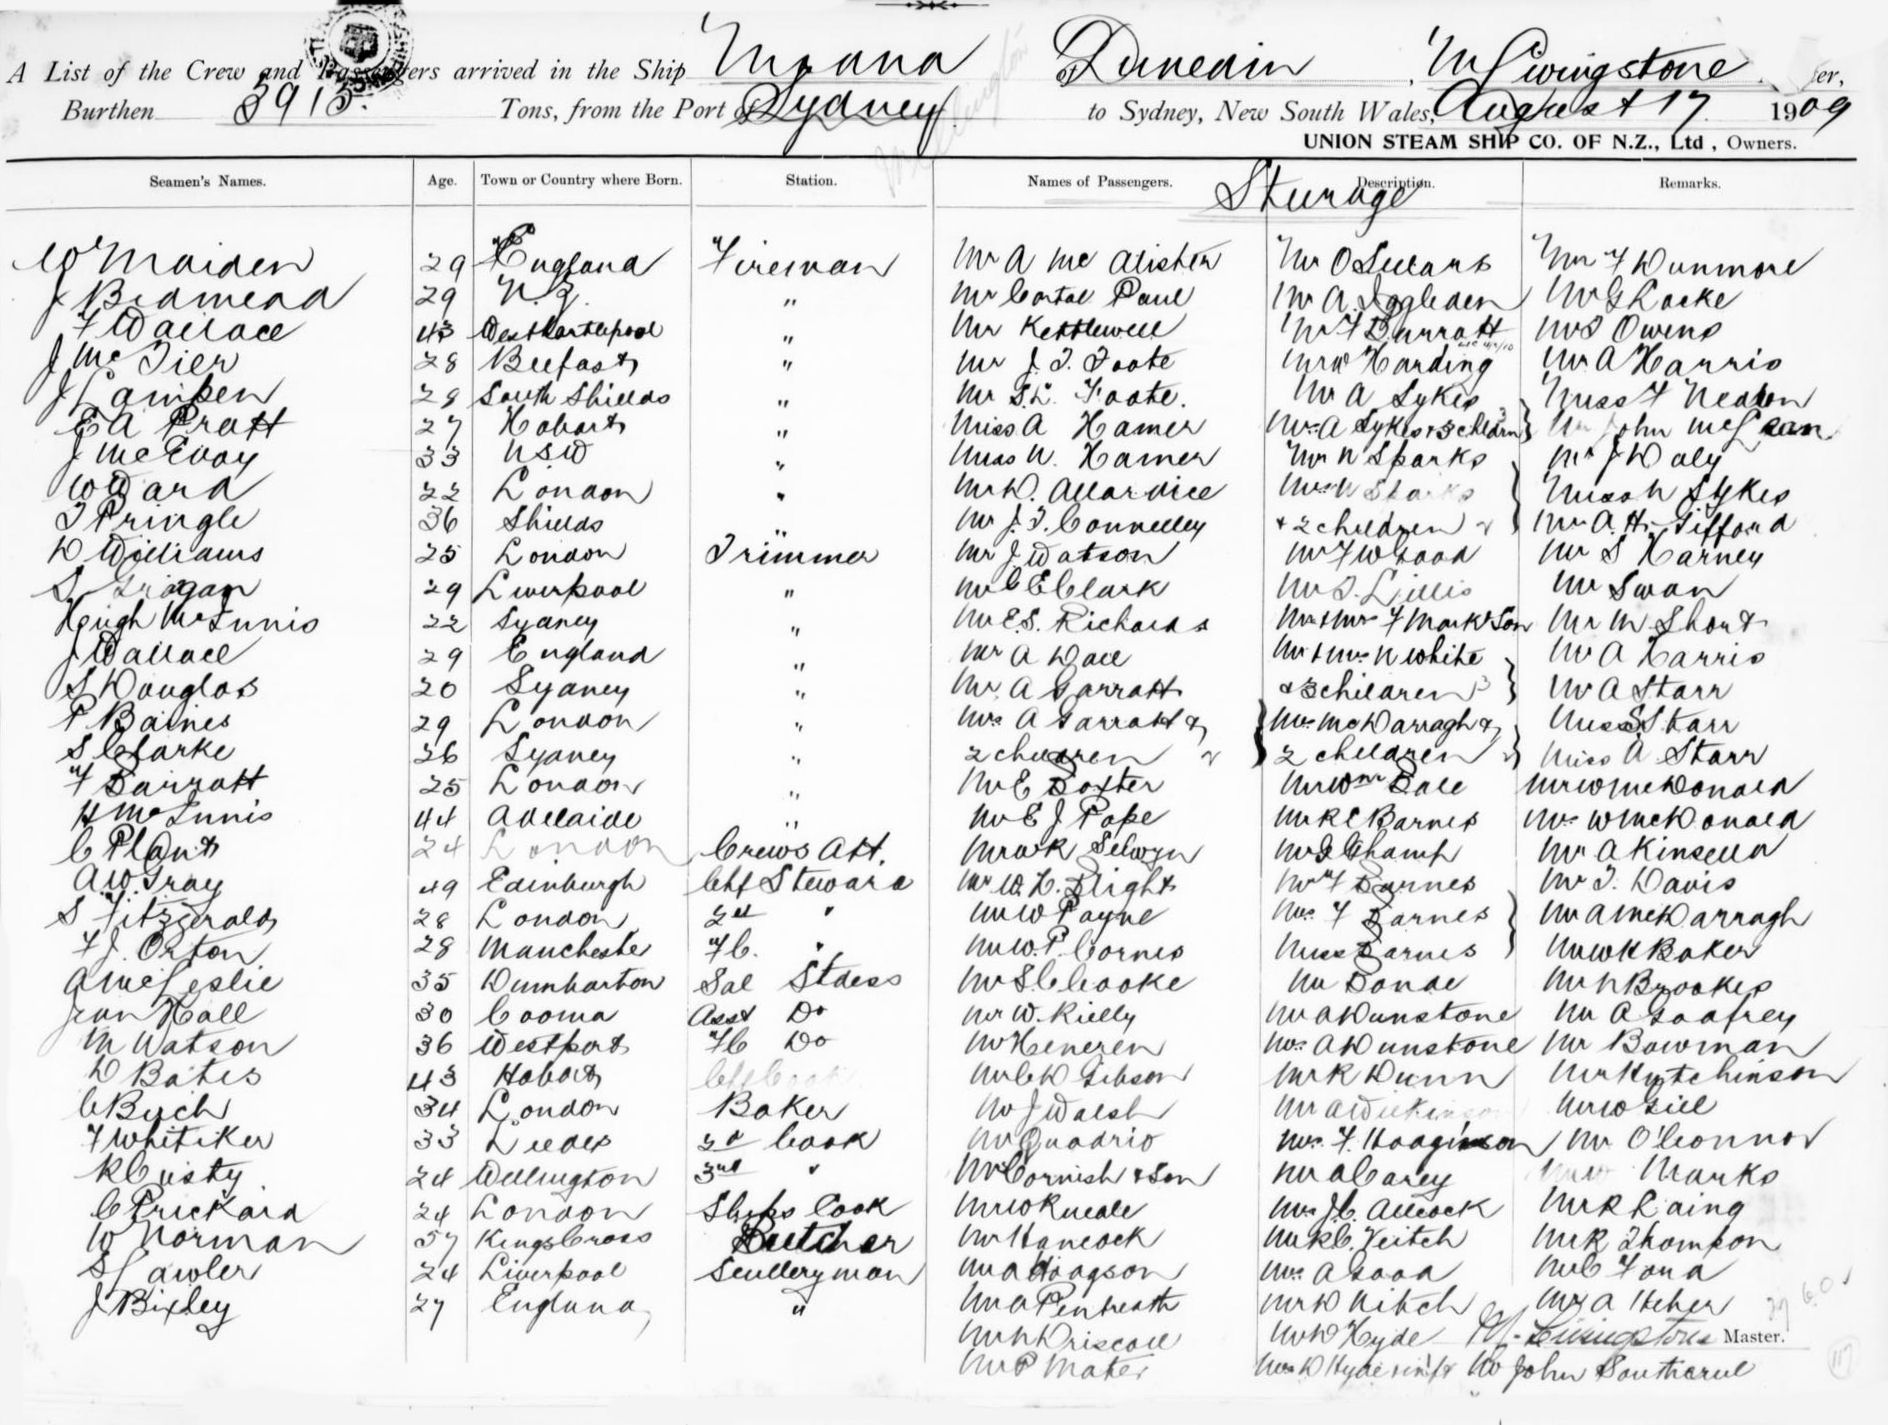 A List of the Crew and Passengers arrived in the Ship Moana of Dunedin, M Livingstone
Burthen 3915. Tons, from the Port of Sydney to Sydney, New South Wales, August 17 1909
UNION STEAM SHIP CO. OF N.Z., Ltd, Owners.
Seamen's Names. Age. Town or Country where Born. Station. Names of Passengers. Description. Remarks.
Sturage
W Maiden 29 England Fireman Mr A Mc Alister Mr O Sellars Mr F Dunmore
J Bidmead 29 N.Z. " Mr Costal Paul Mr A. Iggleden Mr G Locke
F Wallace 43 West Hartlepool " Mr Kettlewell Mr F Burratt Mr T Owens
J McTier 28 Belfast " Mr J. T. Foote Mr W Harding Mr A Harris
J Campen 29 South Shields " Mr S.L. Foote. Mr A Sykes Miss F Nealon
E A Pratt 27 Hobart " Miss A Hamer Mrs A Sykes + 3 childrn Mr John McLean
J McEvoy 33 NSW " Miss N. Hamer Mr N Sparks Mr J Daly
W Ward 22 London " Mr D. Allardice Mrs N Sparks Miss N Sykes
T Pringle 36 Shields " Mr J. T. Connelley + 2 children 2 Mr A. H. Gifford
D Williams 25 London Trimmer Mr J Watson Mr F W Good Mr S Harney
S Grogan 29 Liverpool " Mr C E Clark Mr T. Lillis Mr Swan
Hugh McInnis 22 Sydney " Mr E.S. Richards Mr + Mrs F Mark & Son Mr M Short
J Wallace 29 England " Mr A Dall Mr + Mrs N White Mr A Harris
S Douglas 20 Sydney " Mr A Garratt + 3 children 3 Mr A Starr
P Baines 29 London " Mrs A Garratt & Mrs McDarragh & Miss S Starr
S Clarke 26 Sydney " 2 children 2 2 children 2 Miss A Starr
F Barratt 25 London " Mr E Baxter Mr Wm Bale Mr W McDonald
H McInnis 44 Adelaide " Mr E J Pope Mr R C Barnes Mrs W McDonald
C Plant 24 London Crews Att. Mr W R Selwyn Mr J Champ Mr A Kinsella
A.W. Gray 49 Edinburgh Chf Steward Mr W. H. Blight Mr F Barnes Mr T. Davis
S Fitzgerald 28 London 2nd " Mr W Payne Mrs F Barnes Mr A McDarragh
F J. Orton 28 Manchester FC. " Mr W. P. Cornes Miss Barnes Mr W H Baker
A McLeslie 35 Dumbarton Sal Stdess Mr S C Cooke Mr Bonde Mr N Brookes
Jean Hall 30 Cooma Asst Do Mr W. Rielly Mr A Dunstone Mr A Godfrey
M Watson 36 Westport FC Do Mr Heneren Mrs A Dunstone Mr Bowman
D Bates 43 Hobart Chf Cook Mr C D Gibson Mr R Dunn Mr Hutchinson
C Buch 34 London Baker Mr J Walsh Mr A Wilkinson Mr W Gill
F Whitiker 33 Leeds 2d Cook Mr Quadrio Mrs F. Hodginson Mr O'Connor
R Custy 24 Wellington 3rd " Mr Cornish & Son Mr A Carey Mr W Marks
C Prickard 24 London Ships Cook Mr W Rueale Mrs J. C. Allcock Mr R Laing
W Norman 57 Kings Cross Butcher Mr Hancock Mr R C. Veitch Mr R Thompson
S Lawler 24 Liverpool Sculleryman Mr A Hodgson Mrs A Good Mr C Ford
J Bixley 27 England " Mr A Penreath Mr D Nitch Mr A Heher
Mr N Driscoll Mr D Hyde M. Livingstone Master.
Mr P Mates Mrs D Hyde + inft Mr John Southerul